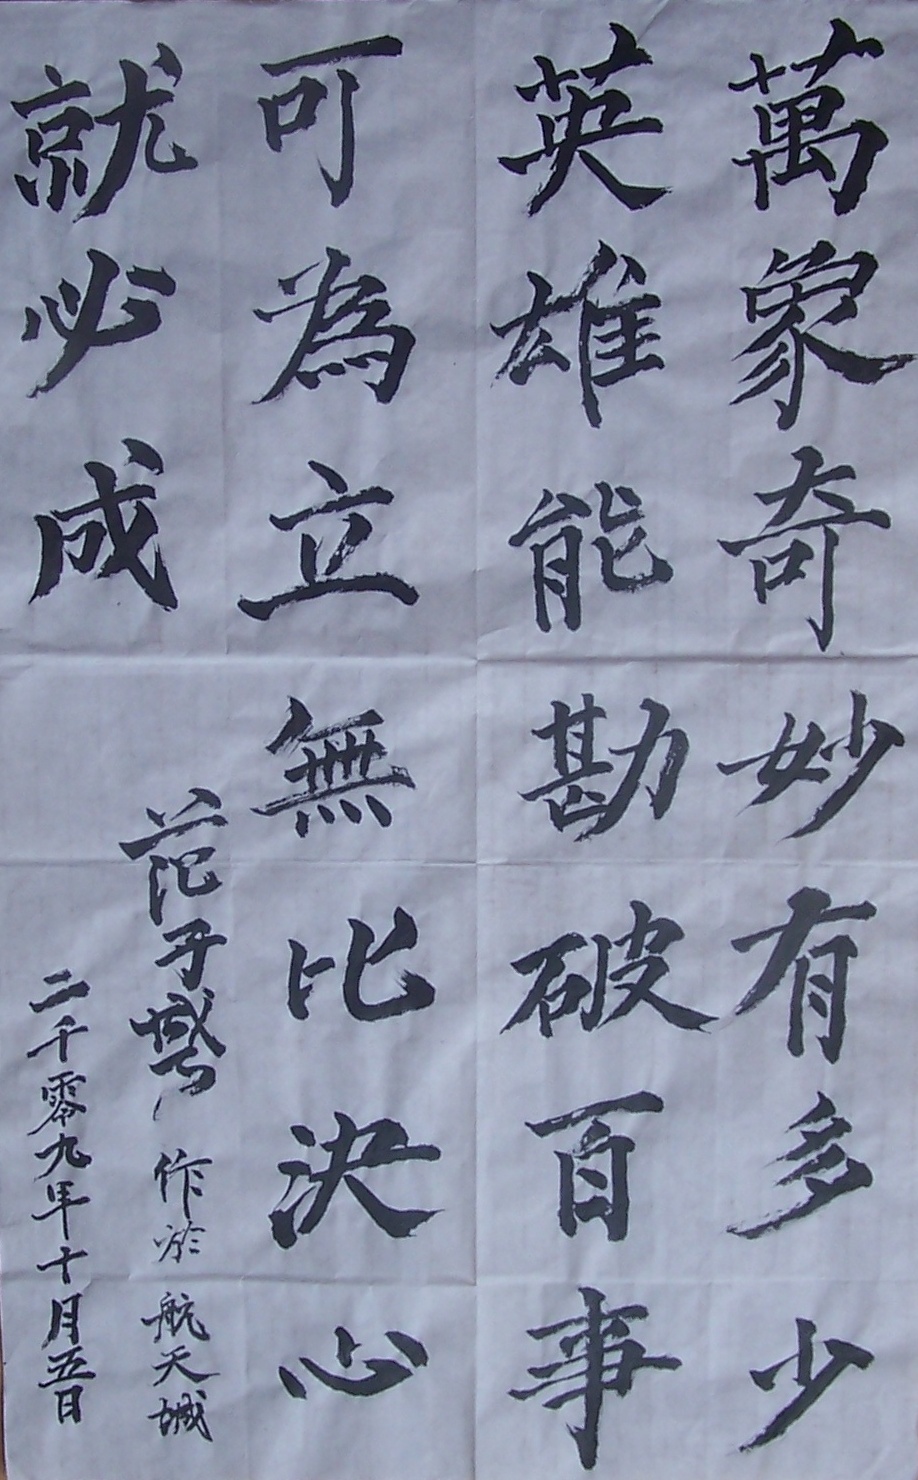 萬象奇妙有多少
英雄能勘破百事
可為立無比決心
就必成
范子 作於航天城
二千零九年十月五日